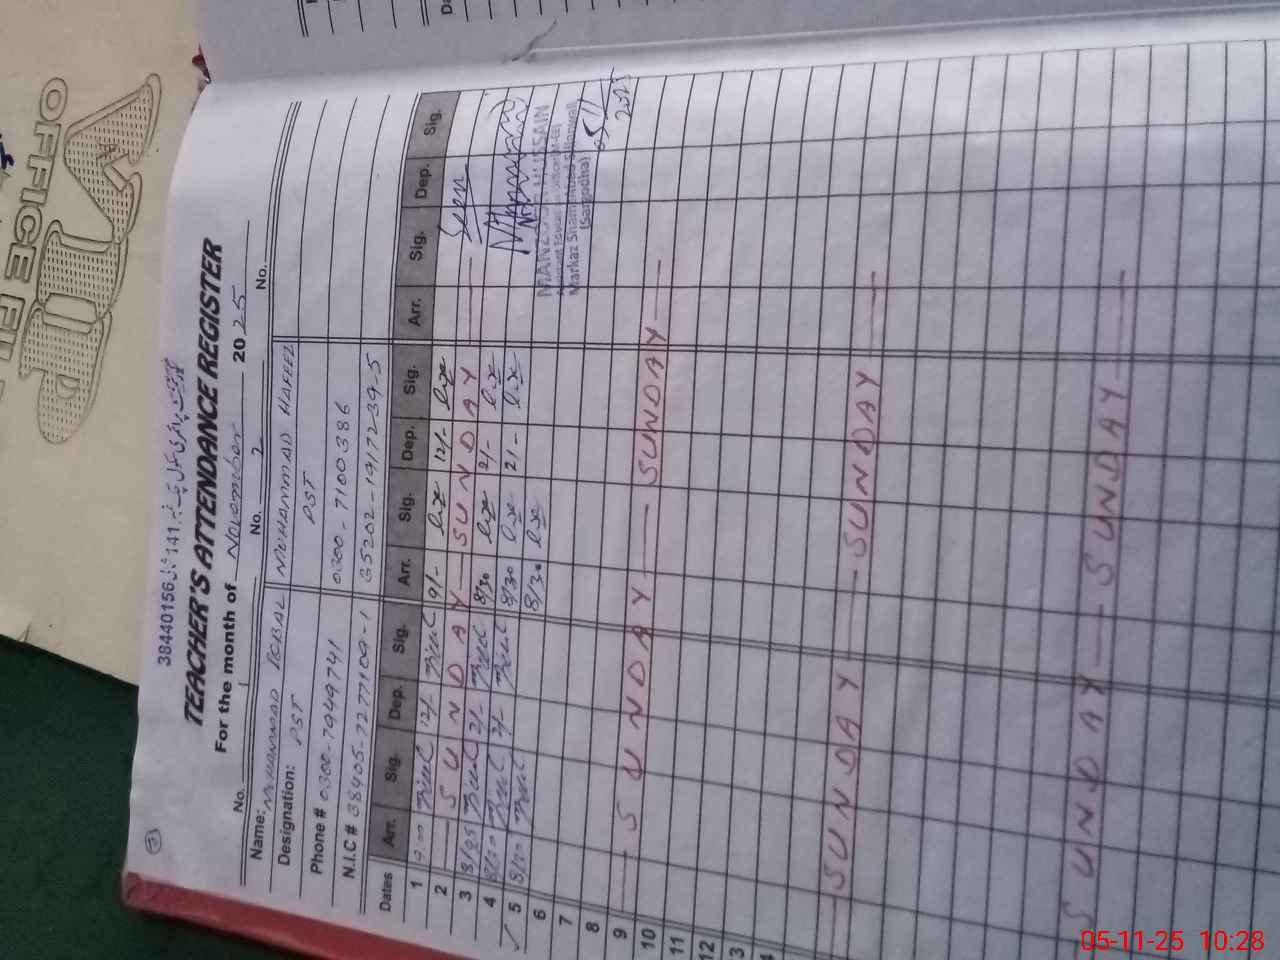 OFFICE FIL
VIP
38440156
TEACHER'S ATTENDANCE REGISTER
For the month of November 2025
No. 1 No. 2 No.
Name: MUHAMMAD IQBAL MUHAMMAD HAFEEZ
Designation: PST PST
Phone # 0300-7949741 0300-7100386
N.I.C # 38405-7277109-1 35202-1917239-5
Dates Arr. Sig. Dep. Sig. Arr. Sig. Dep. Sig. Arr. Sig. Dep. Sig.
1 9:00 12/- 9/- 12/-
2 SUNDAY SUNDAY
3 8/25 2/- 8/30 2/-
4 8/30 2/- 8/30 2/-
5 8/30 8/30
6
7
8
9 SUNDAY SUNDAY
10
11
12
3
4
SUNDAY SUNDAY
SUNDAY SUNDAY
MANZOOR HUSSAIN
Markaz
(Sargodha)
05/11
2025
05-11-25 10:28